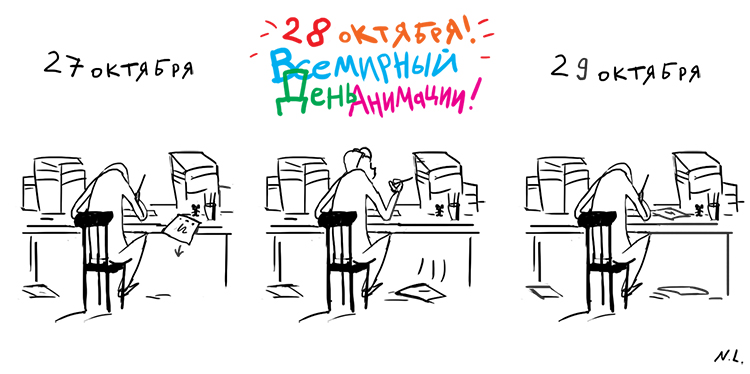 27 октября
28 октября!
Всемирный
День Анимации!
29 октября
N.L.